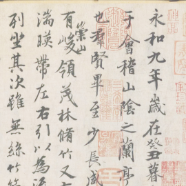 永和九年歲在癸丑暮
于會稽山陰之蘭亭
也羣賢畢至少長咸
崇山
有峻領茂林脩竹又
湍暎帶左右引以為
列坐其次雖無絲竹